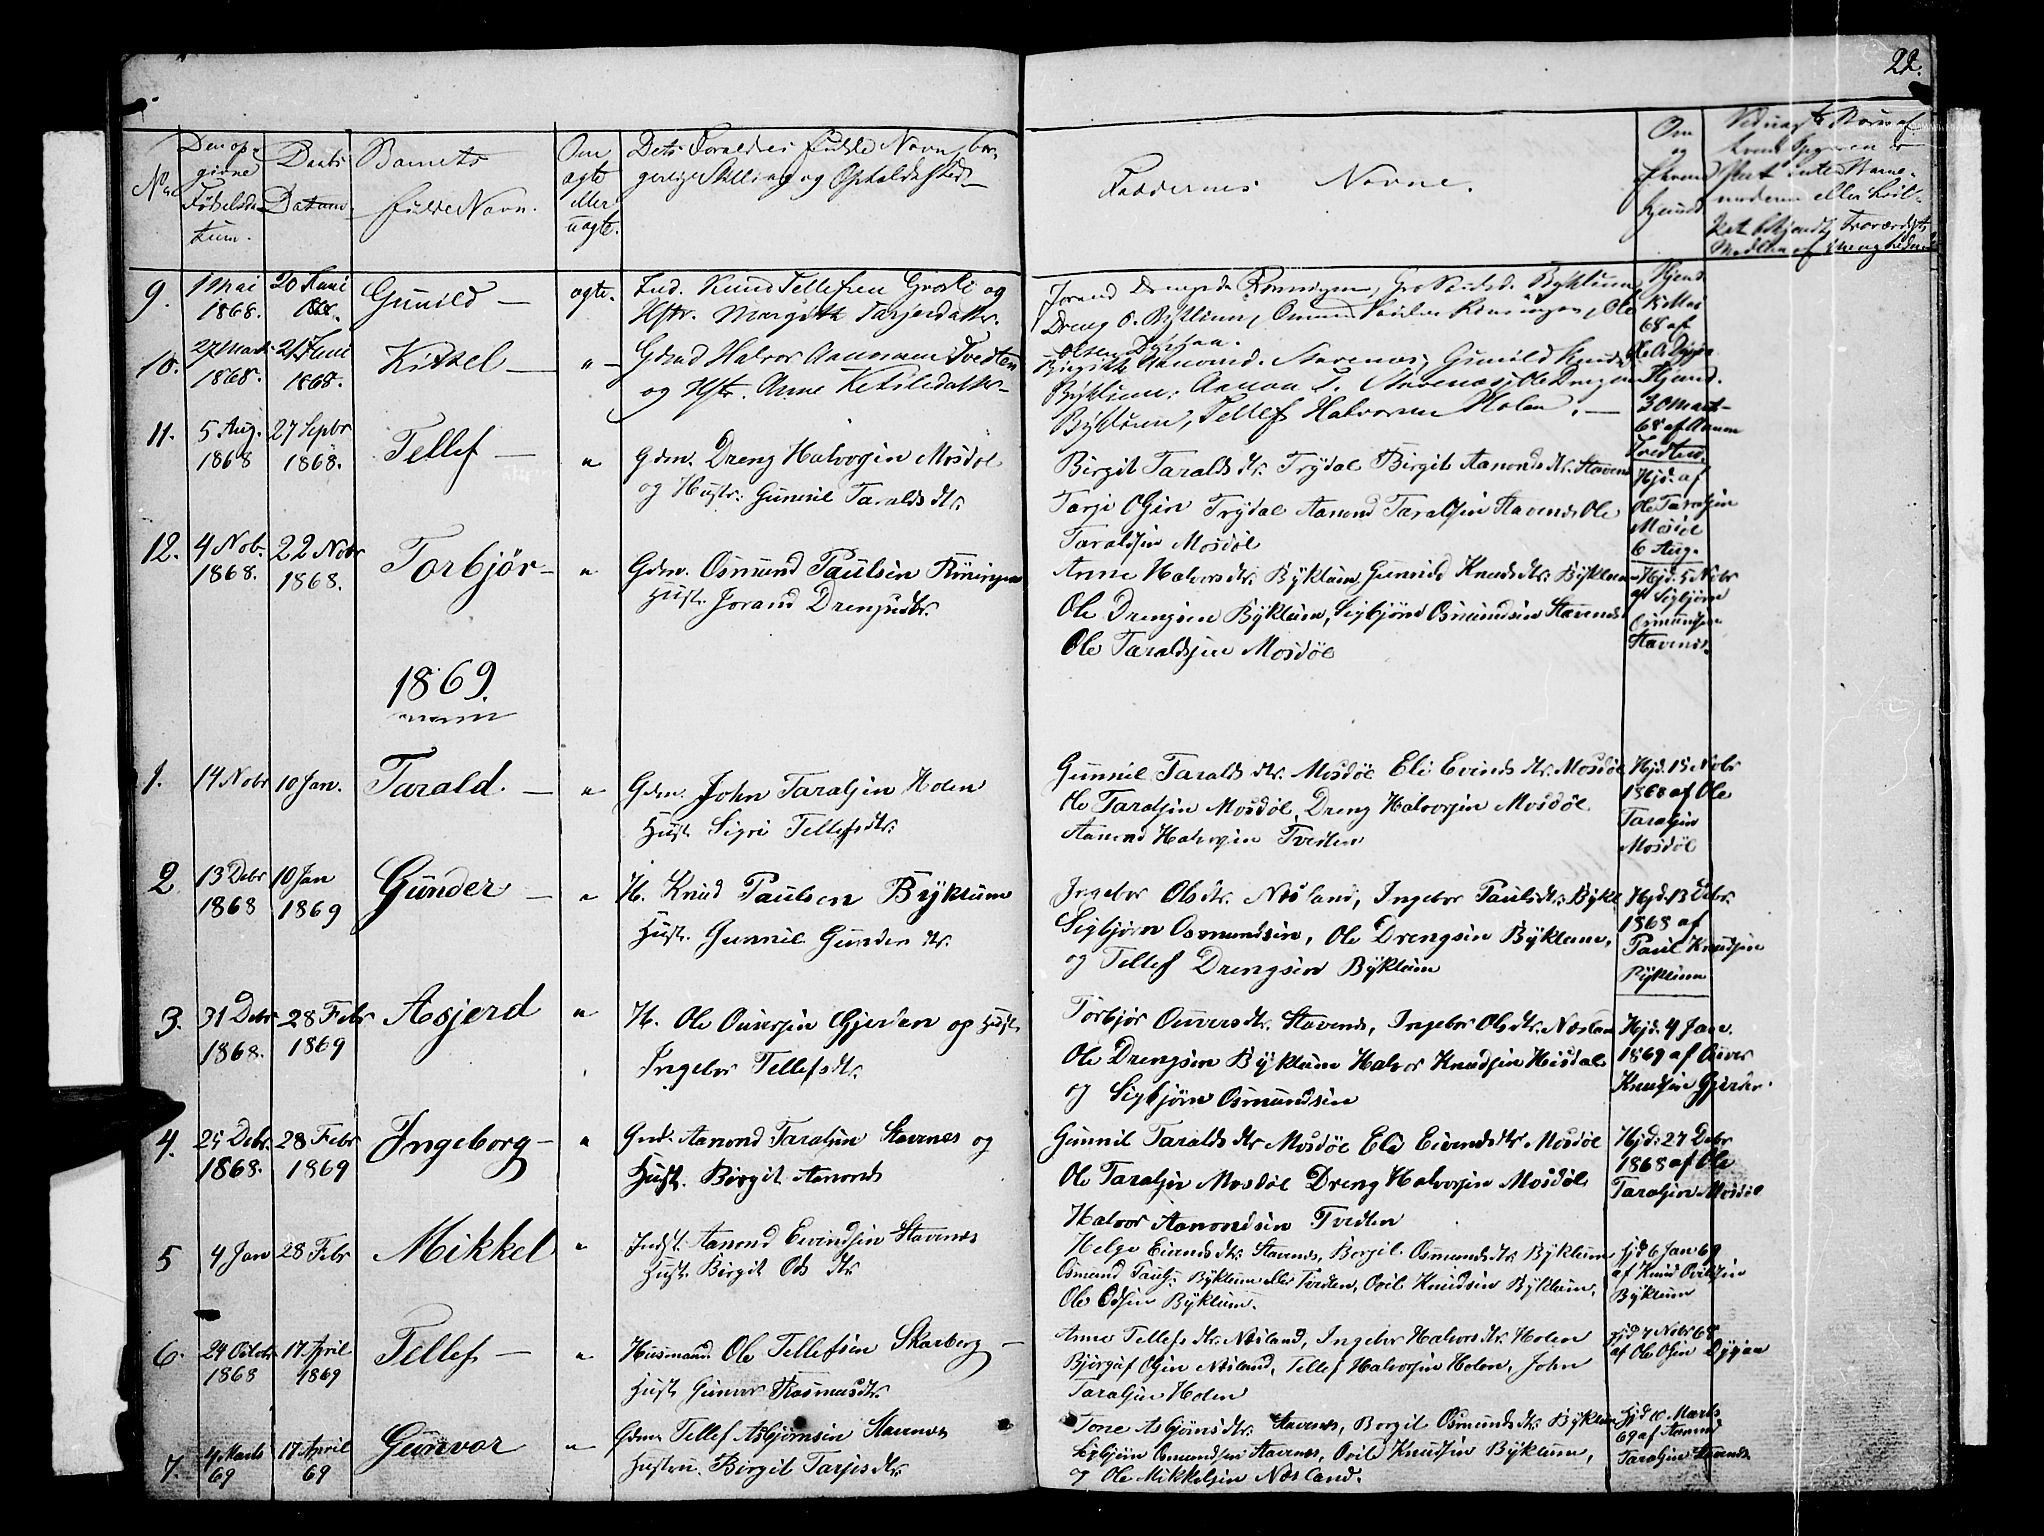 22.
No
Den op-
givne
Fødselsda-
tum.
Daabs
Datum
Barnets
fulde Navn.
Om
ægte
eller
uægte.
Dets Forældres fulde Navn, bor-
gerlige Stilling og Opholdssted
Faddernes Navne.
Om
og
hjemd
9. 1 Mai 1868. 20 Juni 1868. Gunild — ægte. Ind. Knud Tellefsen Grosli og
Hstr. Margith Tarjeisdatter.
Jorand Drengsdr Rønningen, Gro Byklum
Dreng O. Byklum, Olsen
Hjemd
8 Mai
68 af
10. 27 Marts 1868. 21 Juni 1868. Kittel — " — Gdmd Halvor Aanonsen Tvedten
og Hstr. Anne Ketilsdatter
Birgith Aanonsd. Stavenæs, Gunild Knudsd.
Byklum, Aanon T. Stavenæs, Ole Drengsen
Byklum, Tellef Halvorsen Holen. —
Hjemd.
30 Mart
68 af Aanon
Tvedten
11. 5 Aug. 1868 27 Sepbr 1868. Tellef — " Gdm. Dreng Halvorsen Mosdøl
og Hustr. Gunnil Taralds dtr.
Birgit Taralds dtr. Trydal Birgit Aanonds dtr. Stavenes
Tarje Olsen Trydal Aanond Taraldsen Stavenes Ole
Taraldsen Mosdøl
Hjd. af
Ole Taraldsen
Mosdøl
6 Aug.
12. 4 Nob. 1868. 22 Nobr 1868. Torbjør — " Gdm. Osmund Paulsen Røningen
Hust. Jorand Drengsdtr.
Anne Halvorsdtr. Byklum, Gunnild Knudsdtr. Byklum
Ole Drengsen Byklum, Sigbjørn Osmundsen Stavenes
Ole Taraldsen Mosdøl
Hjd. 5 Nobr
af Sigbjørn
Osmundsen
Stavenes.
1869.
1. 14 Nobr 10 Jan. Tarald. — " Gdm. John Taralsen Holen
Hust Sigri Tellefsdtr.
Gunnil Taralds dtr. Mosdøl Eli Evinds dtr. Mosdøl
Ole Taralsen Mosdøl, Dreng Halvorsen Mosdøl
Aanond Halvorsen Tvedten
Hjd. 15 Nobr
1868 af Ole
Taralsen
Mosdøl
2 13 Debr 1868 10 Jan 1869 Gunder — " H. Knud Paulsen Byklum
Hust. Gunnil Gunders dtr.
Ingebor Ols dtr. Næsland, Ingebor Paulsdtr. Bykl
Sigbjørn Osmundsen, Ole Drengsen Byklum,
og Tellef Drengsen Byklum
Hjd. 13 Debr.
1868 af
Paul Knudsen
Byklum
3. 31 Debr 1868. 28 Febr 1869 Asjerd " H. Ole Ouversen Gjerden og Hust.
Ingebor Tellefsdtr.
Torbjør Ouversdtr. Stavenes, Ingebor Olsdtr. Næsland
Ole Drengsen Byklum Halvor Knudsen Heisdal
og Sigbjørn Osmundsen
Hjd. 4 Jan.
1869 af Ouver
Knudsen Gjerden.
4. 25 Debr. 1868. 28 Febr 1869 Ingeborg — " Gmd. Aanond Taralsen Stavenes og
Hust. Birgit Aanonds
Gunnil Taralds dtr Mosdøl Eli Eivendsdtr. Mosdøl
Ole Taralsen Mosdøl Dreng Halvorsen Mosdøl
Halvor Aanondsen Tvedten
Hjd. 27 Debr
1868 af Ole
Taralsen Mosdøl
5 4 Jan 28 Febr Mikkel " Indst. Aanond Eivindsen Stavenes
Hust Birgit Ols dtr
Helge Eivendsdtr. Stavenes, Borgil Osmundsdtr. Byklum
Osmund Pauls. Byklum eller Tveiten, Ovil Knudsen Byklum,
Ole Olsen Byklum.
Hjd 6 Jan 69
af Knud Ovilsen
Byklum
6. 24 Octobr 1868 17 April 1869 Tellef — " Husmand Ole Tellefsen Skarberg —
Hust Gunvor Rasmusdtr
Anne Tellefs dtr. Næsland, Ingebor Halvorsdtr. Holen
Bjørguf Olsen Næsland, Tellef Halvorsen Holen, John
Taralsen Holen
Hjd 7 Nobr 68
af Ole Olsen
7. 4 Marts 69 17 April 69 Gunvor " Gdm. Tellef Asbjørnsen Stavenes
Hustru. Birgit Tarjes dtr.
Tone Asbjørnsdtr. Stavenes, Borgil Osmundsdtr. Byklum
Sigbjørn Osmundsen Stavenes, Ovile Knudsen Byklum,
og Ole Mikkelsen Næsland.
Hjd 10 Marts
69 af Aanon
Taralsen Stavenes